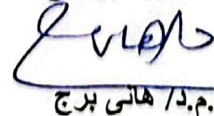 م.د/ هانى برج